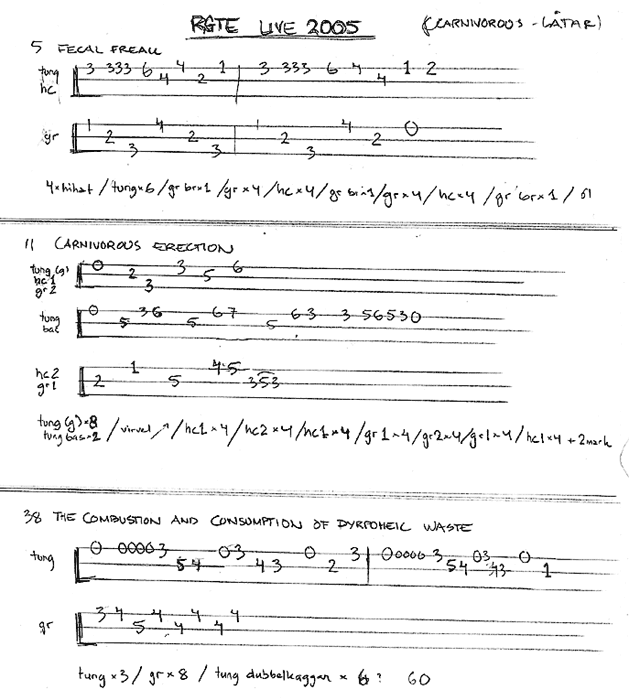 RGTE LIVE 2005 (CARNIVOROUS-LÅTAR)
5 FECAL FREAK
tung hc 3 333 6 4 4 2 1 3 333 6 4 4 1 2
gr 1 2 3 4 2 3 1 2 3 4 2 0
4×hihat / tung×6 / gr br×1 / gr×4 / hc×4 / gr br×1 / gr×4 / hc×4 / gr br×1 /
11 CARNIVOROUS ERECTION
tung (g) hc1 gr2 0 2 3 3 5 6
tung bas 0 5 3 6 5 6 7 5 6 3 3 5 6 5 3 0
hc2 gr1 2 1 5 4 5 3 5 3
tung (g)×8
tung bas×2 / virvel ↗ / hc1×4 / hc2×4 / hc1×4 / gr1×4 / gr2×4 / gr1×4 / hc1×4 + 2mark
38 THE COMBUSTION AND CONSUMPTION OF PYRPOHEIC WASTE
tung 0 0000 3 5 4 0 3 4 3 0 2 3 0 0000 3 5 4 0 3 4 3 0 1
gr 3 4 5 4 4 4 4 4
tung×3 / gr×8 / tung dubbelkaggar × 6? 60